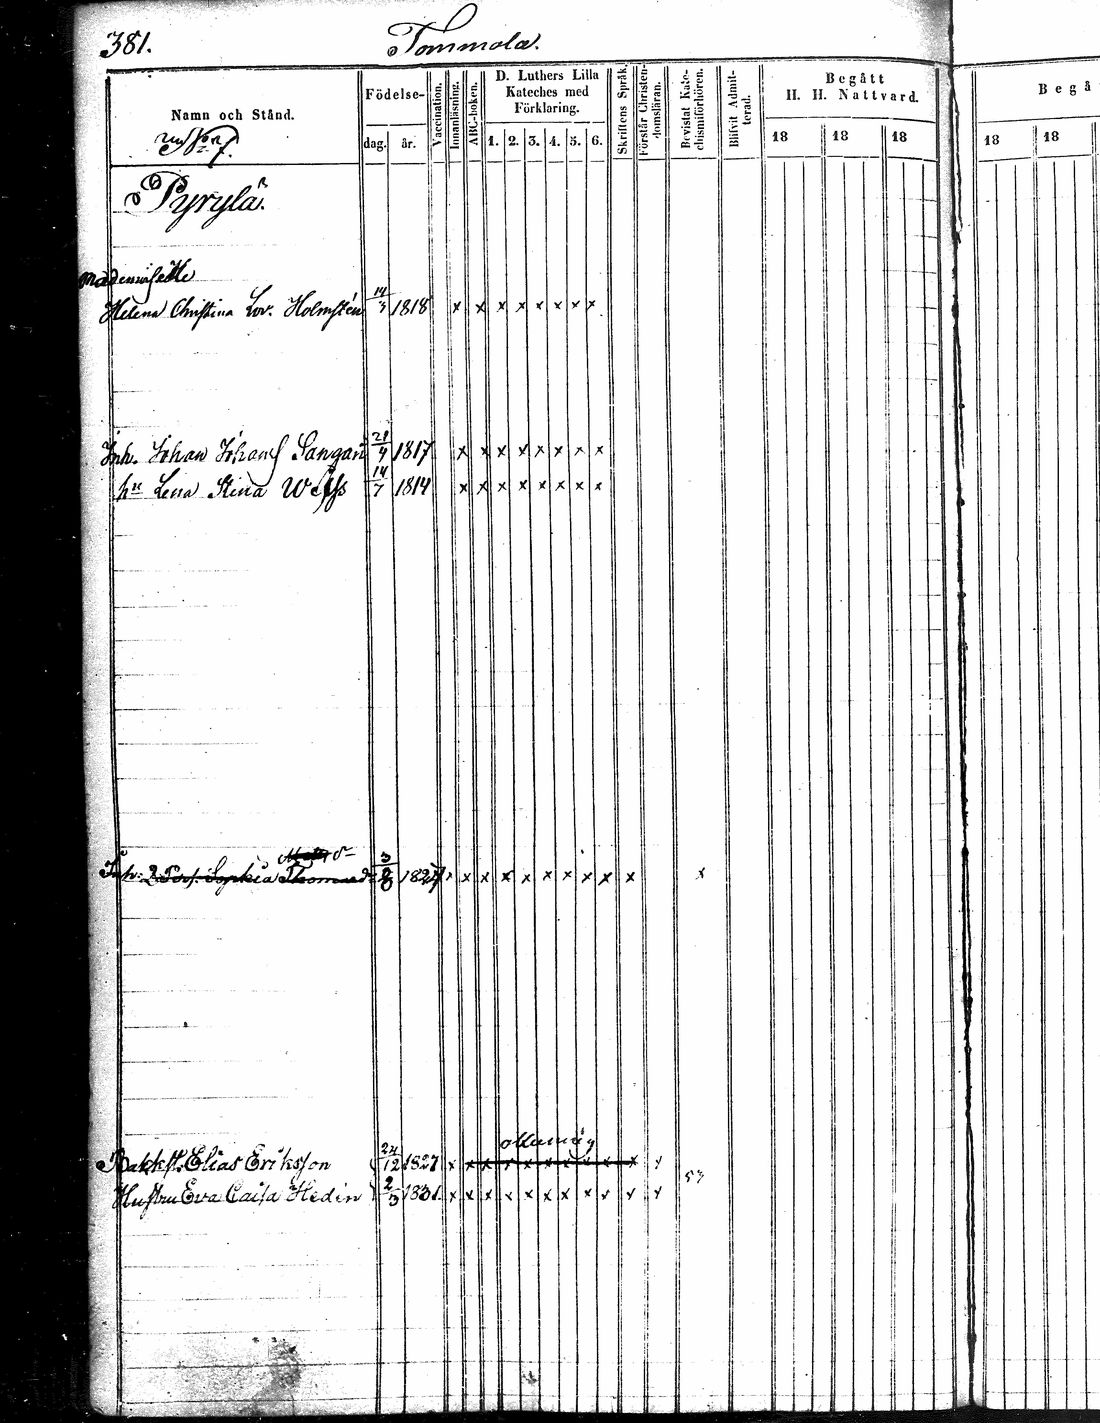 381. Tommola.
Namn och Stånd.
Födelse-
dag. år.
Vaccination.
Innanläsning.
ABC-boken.
D. Luthers Lilla
Kateches med
Förklaring.
1. 2. 3. 4. 5. 6.
Skriftens Språk.
Förstår Christen-
domsläran.
Bevistat Kate-
chismiförhören.
Blifvit Admit-
terad.
Begått
H. H. Nattvard.
18 18 18
Begå
18 18
Pyrylä.
Mademoiselle
Helena Christina Lov. Holmstén 14/3 1818 x x x x x x x x
Inh. Johan Johans 21/4 1817 x x x x x x x x
hu Lena Stina 14/7 1814 x x x x x x x x
Inh: Sophia 1827 x x x x x x x x x x
Elias Eriksson 24/12 1827 x x x x x x x x x x
53
Hustru Eva Caisa Hedin 2/3 1831. x x x x x x x x x x